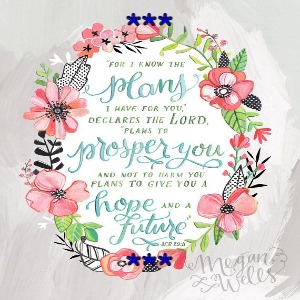 ***
"FOR I KNOW THE
plans
I HAVE FOR YOU,"
DECLARES THE LORD,
"PLANS TO
prosper you
AND NOT TO HARM YOU
PLANS TO GIVE YOU A
hope AND A
future"
JER 29:11
***
Megan
Wells